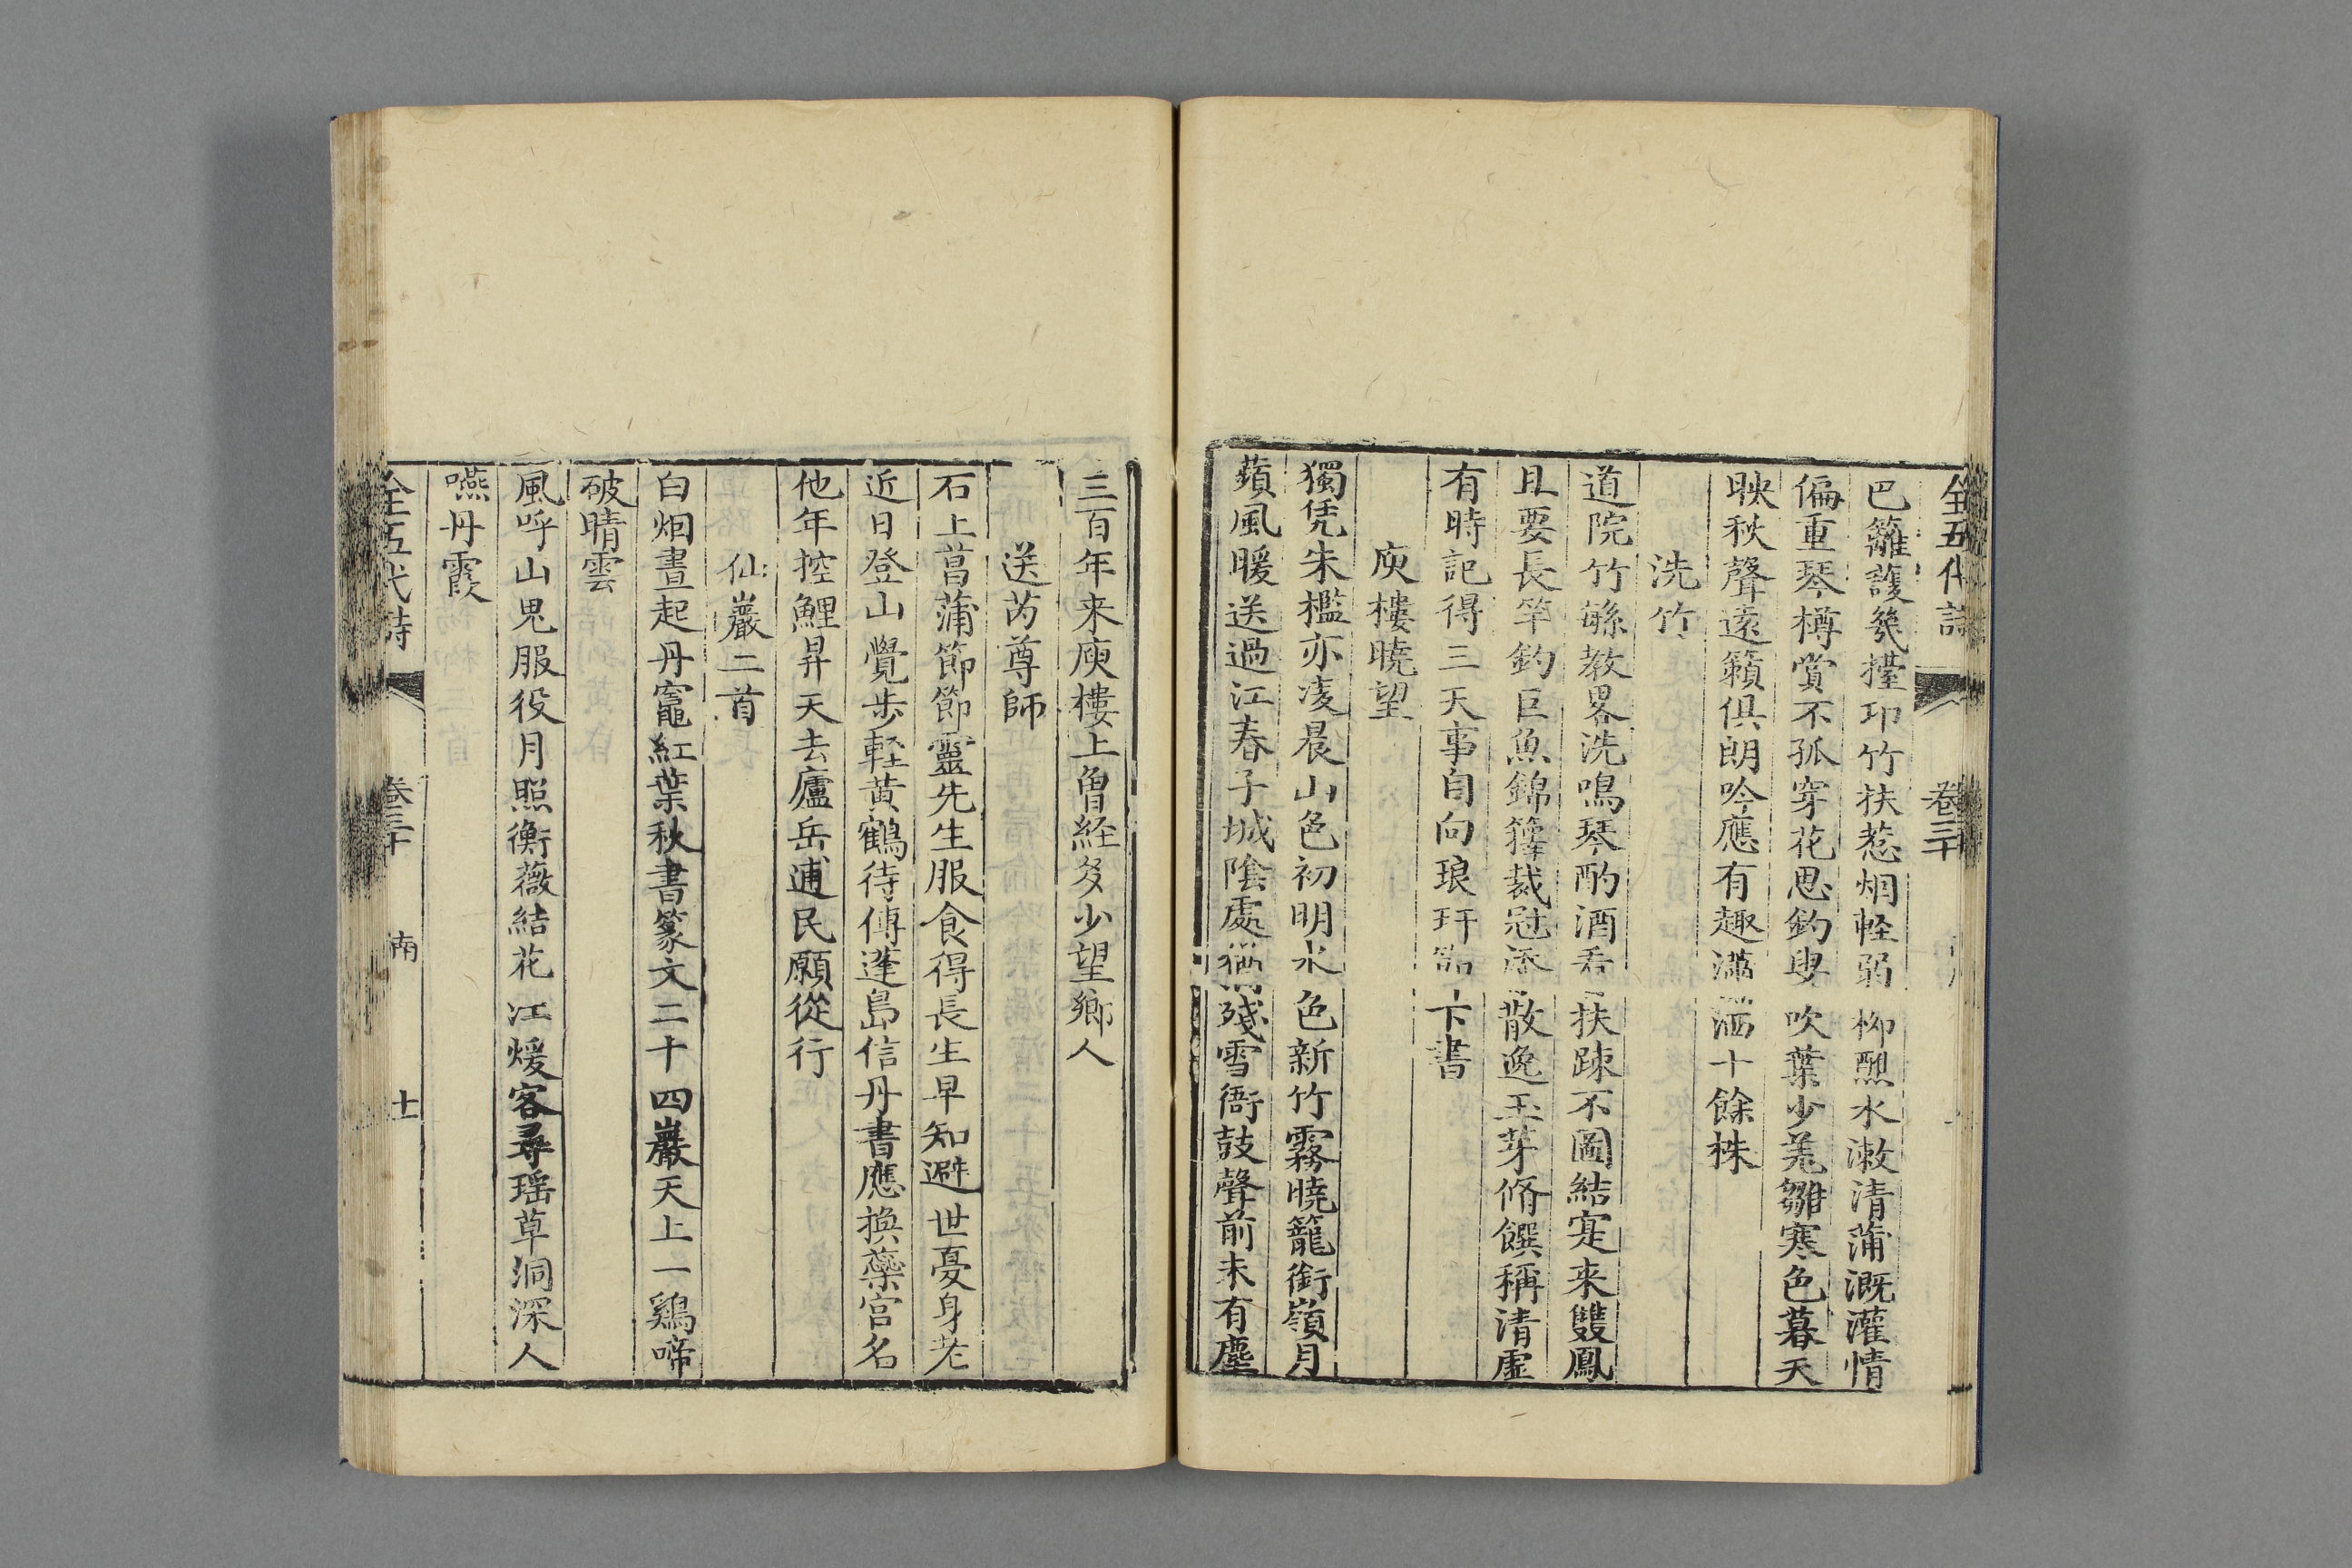 全五代詩 卷三十
巴籬護幾擡印竹扶惹烟輕弱柳㷼水漱清蒲溉灌情
偏重琴樽賞不孤穿花思釣叟吹葉少羌雛寒色暮天
映秋聲遠籟俱朗吟應有趣瀟洒十餘株
洗竹
道院竹繇教畧洗鳴琴酌酒看扶踈不圖結寔来雙鳳
且要長竿釣巨魚錦籜裁冠添散逸玉芽脩饌稱清虛
有時記得三天事自向琅玕節下書
庾樓曉望
獨凭朱檻亦凌晨山色初明水色新竹霧曉籠銜嶺月
蘋風暖送過江春子城陰處猶殘雪衙鼓聲前未有塵
三百年来庾樓上曾経多少望鄉人
送芮尊師
石上菖蒲節節靈先生服食得長生早知避世憂身老
近日登山覺步軽黃鶴待傳蓬島信丹書應換蘂宮名
他年控鯉昇天去廬岳逋民願從行
仙巖二首
白烟晝起丹竈紅葉秋書篆文二十四巖天上一鷄啼
破晴雲
風呼山鬼服役月照衡薇結花江煖客尋瑶草洞深人
嚥丹霞
全五代詩 卷三十 南 十